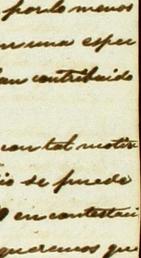 por lo menos
una esper
han contribuido
con tal motiv
se puede
en contestaci
queremos que